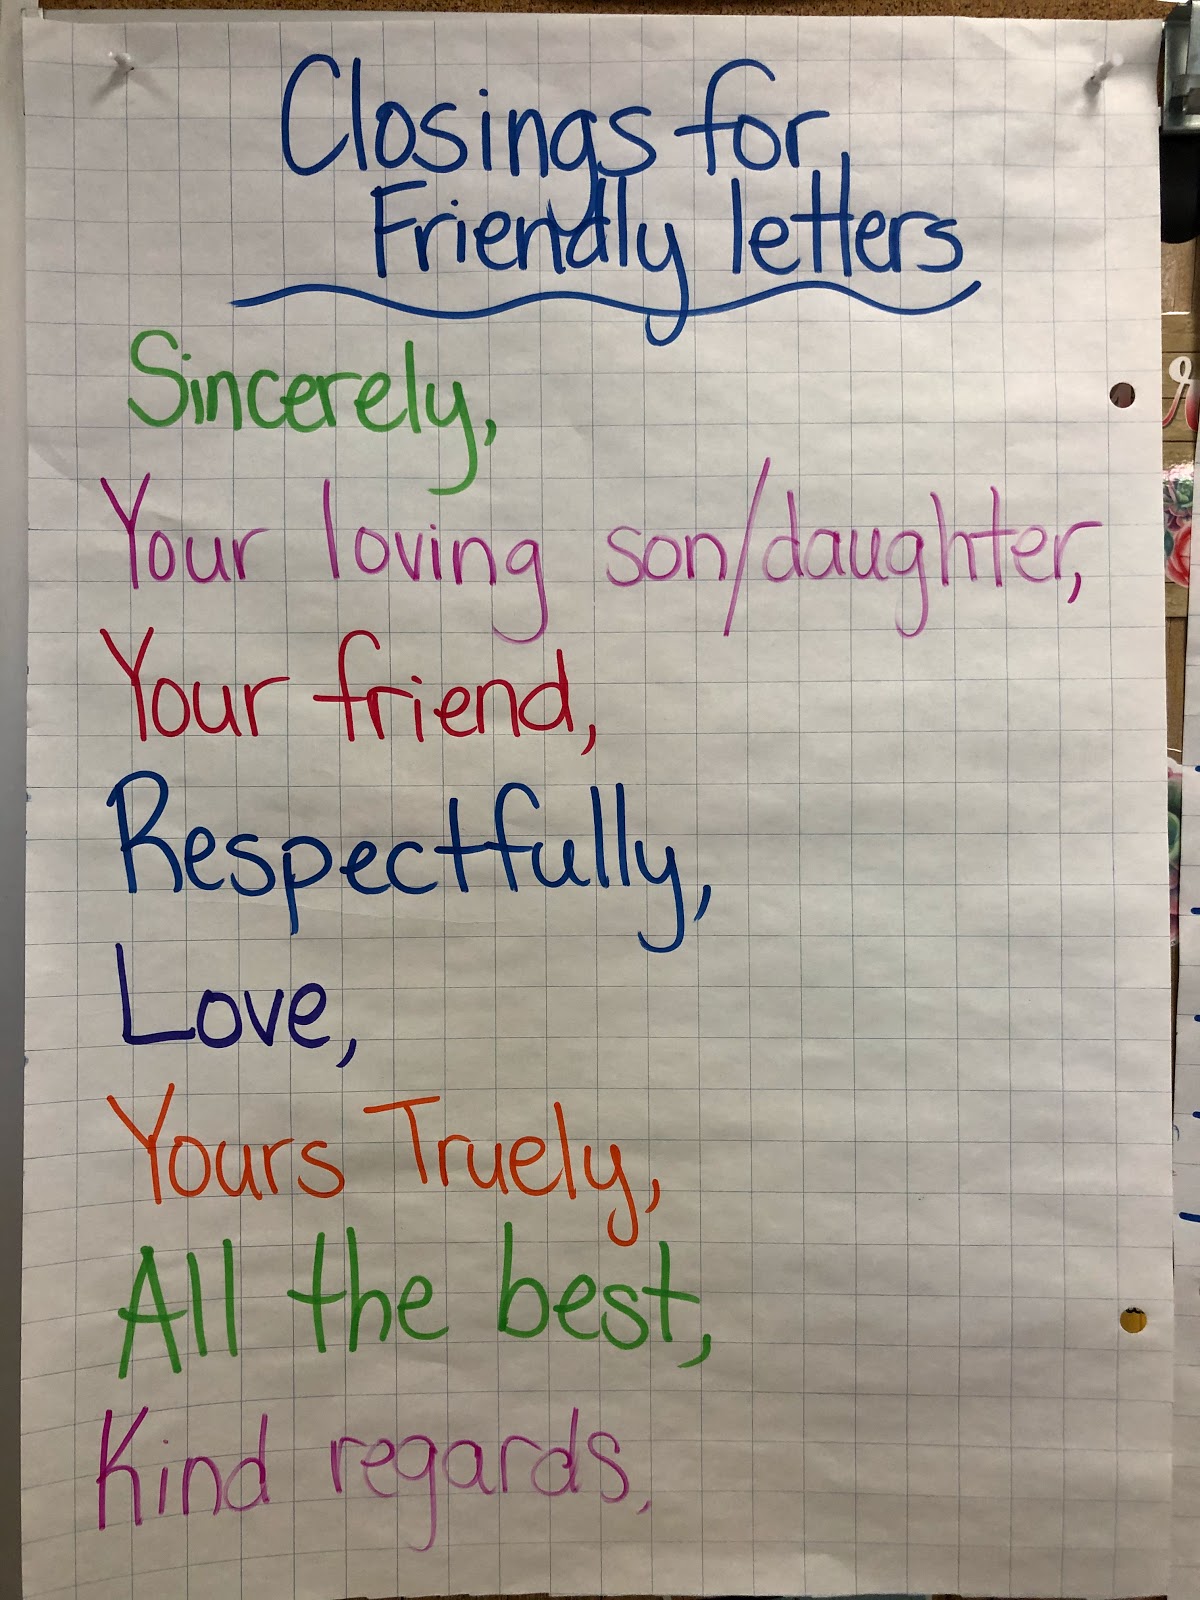 Closings for
Friendly letters
Sincerely,
Your loving son/daughter,
Your friend,
Respectfully,
Love,
Yours Truely,
All the best,
Kind regards,